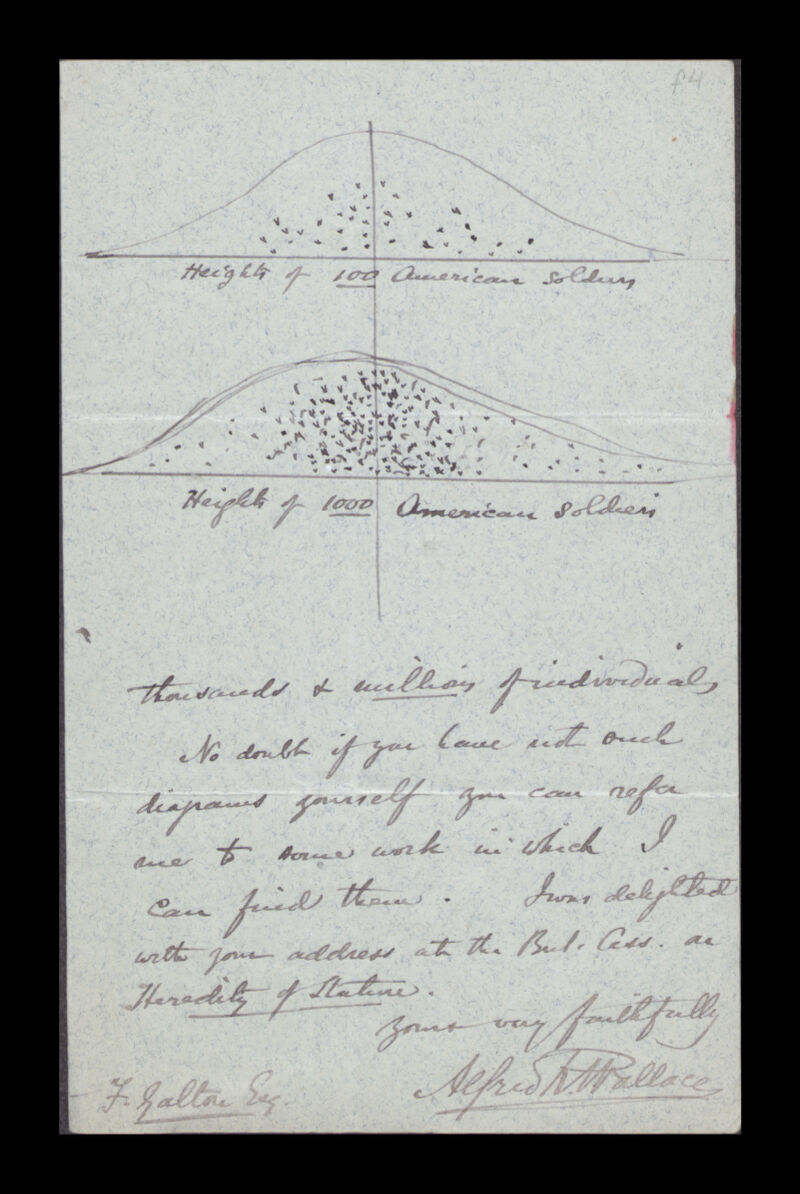 f4
Heights of 100 American soldiers
Heights of 1000 American soldiers
thousands & millions of individuals
No doubt if you have not such
diagrams yourself you can refer
me to some work in which I
can find them. I was delighted
with your address at the Brit. Ass. on
Heredity of Stature.
Yours very faithfully
Alfred R. Wallace
F. Galton Esq.